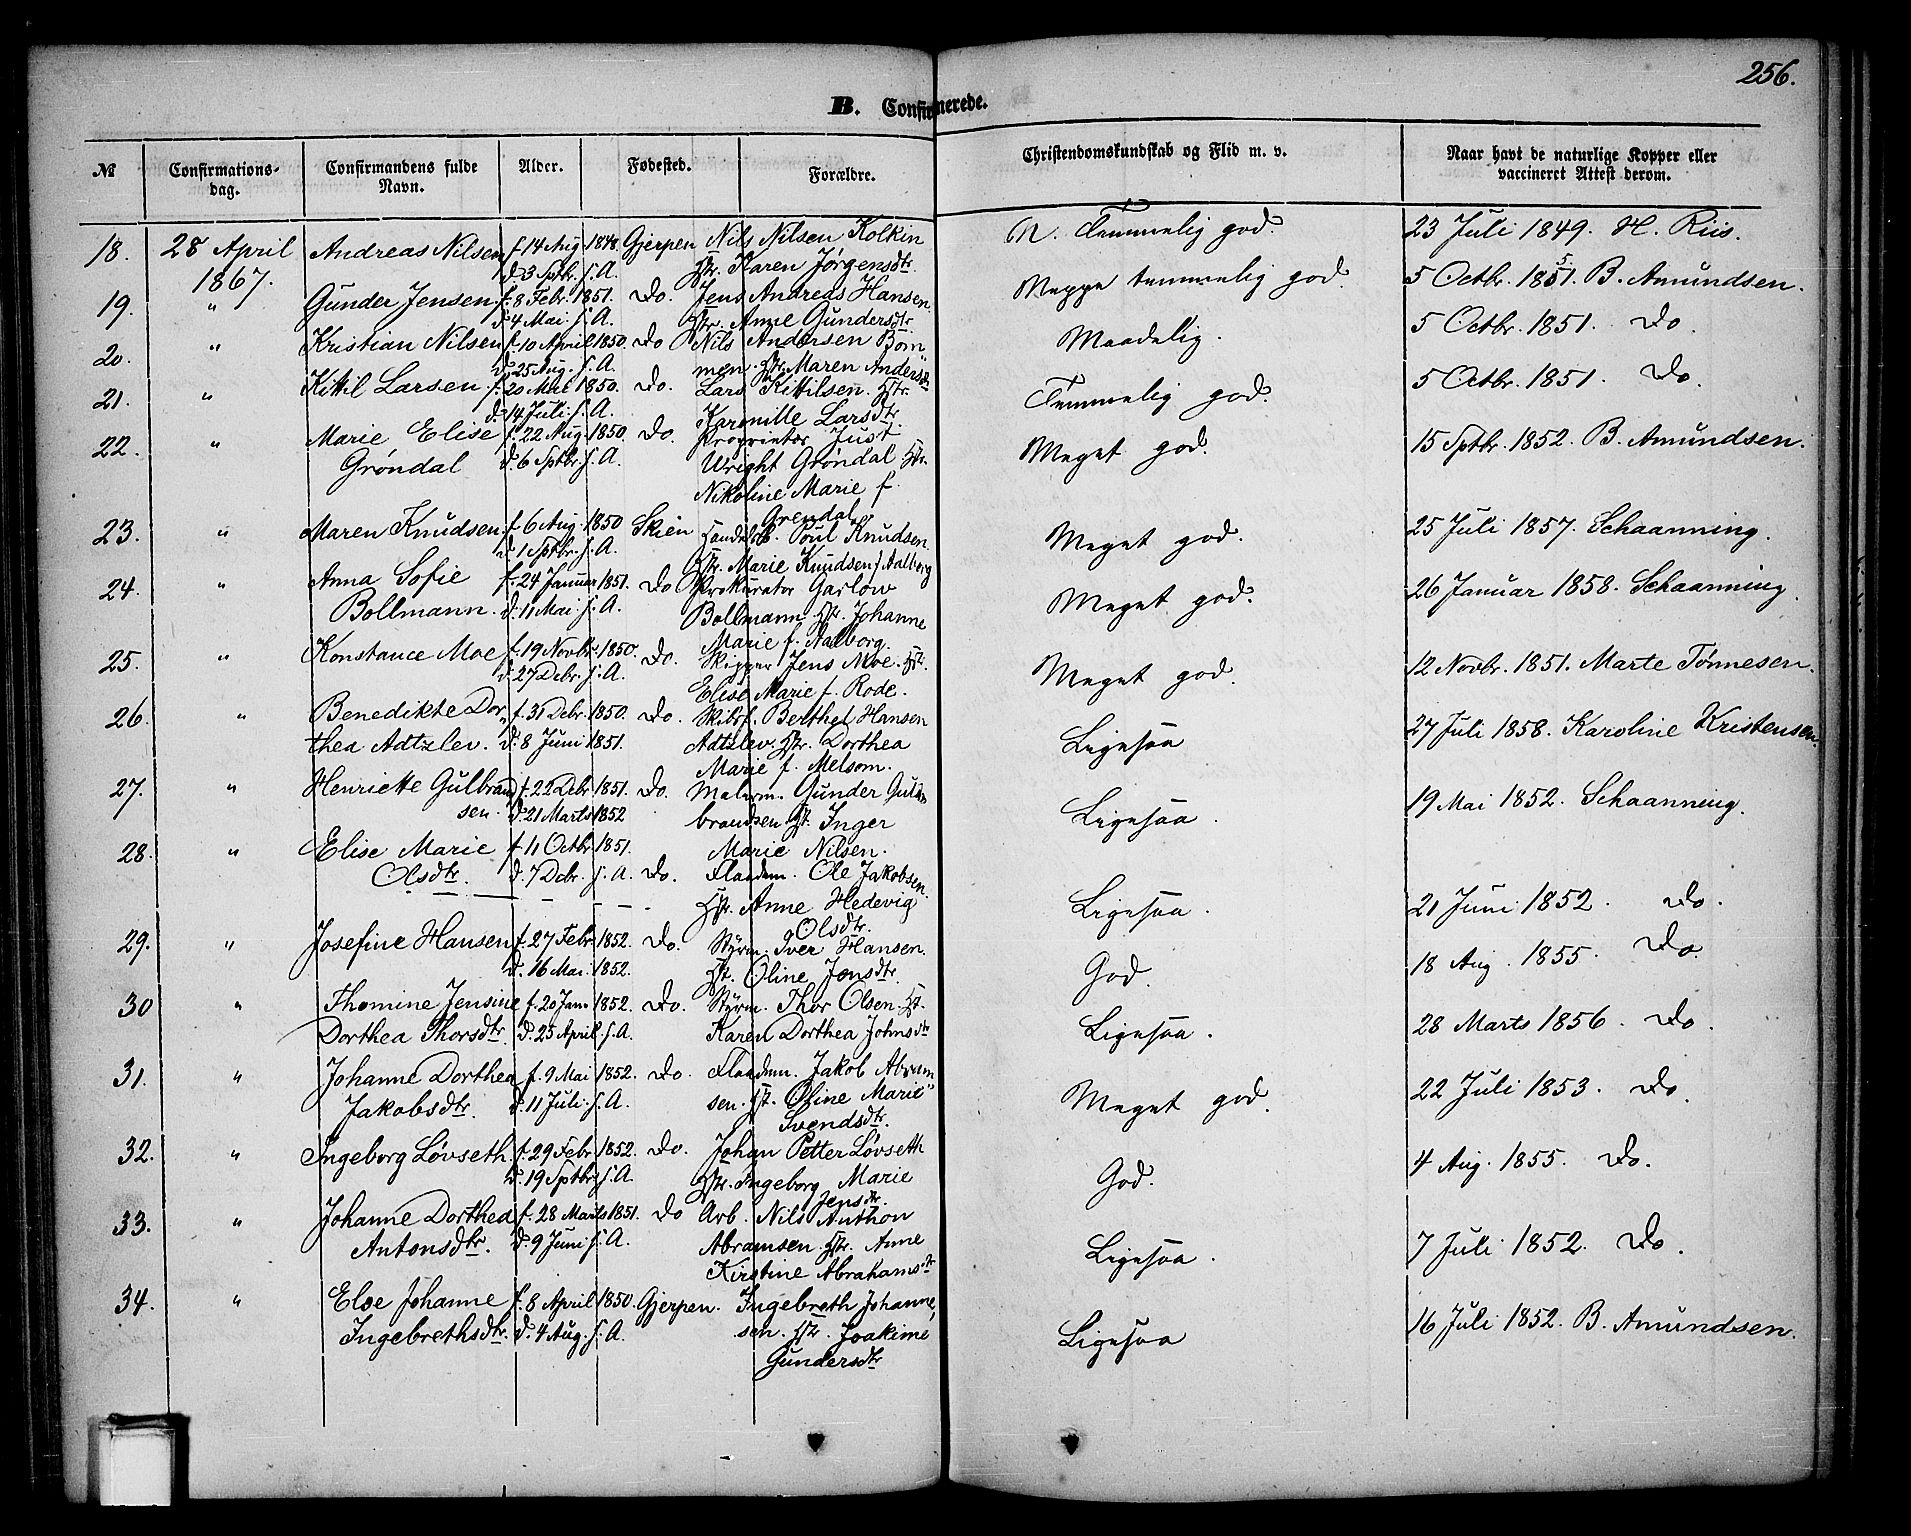 256.
B. Confirmerede.
№ Confirmations-dag. Confirmandens fulde Navn. Alder. Fødested. Forældre. Christendomskundskab og Flid m. v. Naar havt de naturlige Kopper eller vaccineret Attest derom.
18. 28 April 1867. Andreas Nilsen f. 14 Aug. 1848 Gjerpen Nils Nilsen Kolkin N. Temmelig god. 23 Juli 1849. H. Riis.
d. 3 Sptbr. s. A. Hstr. Karen Jørgensdtr.
19. " Gunder Jensen. f. 8 Febr. 1851. Do. Jens Andreas Hansen Meget temmelig god. 5 Octbr. 1851. B. Amundsen.
d. 4 Mai s. A. Hstr. Anne Gundersdtr.
20. " Kristian Nilsen f. 10 April 1850. Do Nils Andersen Bom Maadelig. 5 Octbr. 1851. Do.
d. 25 Aug. s. A. men. Hstr. Maren Andersdtr
21. " Kittil Larsen. f. 20 Mai 1850. Do. Lars Kittilsen. Hstr. Temmelig god. 5 Octbr. 1851. Do.
d. 14 Juli s. A. Larsdtr.
22. " Marie Elise f. 22 Aug. 1850. Do. Proprietær Just Meget god. 15 Sptbr. 1852. B. Amundsen.
Grøndal d. 6 Sptbr. s. A. Wright Grøndal Hstr.
Nikoline Marie f.
Grøndal
23. " Maren Knudsen. f. 6 Aug. 1850 Skien Poul Knudsen Meget god. 25 Juli 1857. Schaanning.
d. 1 Sptbr. s. A. Hstr. Marie Knudsen f. Aalborg
24. " Anna Sofie f. 24 Januar 1851. Do Prokurator Garlow Meget god. 26 Januar 1858. Schaanning.
Bollmann. d. 11 Mai s. A. Bollmann Hstr. Johanne
Marie f. Aalborg.
25. " Konstance Moe f. 19 Novbr. 1850. Do. Skipper Jens Moe. Hstr. Meget god. 12 Novbr. 1851. Marte Tønnesen.
d. 27 Debr. s. A. Elise Marie f. Rode.
26. " Benedikte Dor- f. 31 Debr. 1850. Do. Skibsf. Berthel Hansen Ligesaa 27 Juli 1858. Karoline Kristensen.
thea Adtzlev. d. 8 Juni 1851. Adtzlev. Hstr. Dorthea
Marie f. Melsom.
27. " Henriette Gulbrand f. 22 Debr. 1851. Do. Malerm. Gunder Gul Ligesaa. 19 Mai 1852. Schaanning.
sen. d. 21 Marts 1852 brandsen Hst. Inger
Marie Nilsen.
28. " Elise Marie f. 11 Octbr. 1851.
Olsdtr. d. 7 Debr. s. A. Do. Flaadem. Ole Jakobsen. Ligesaa. 21 Juni 1852. Do.
Hstr. Anne Hedevig
Olsdtr.
29. " Josefine Hansen f. 27 Febr. 1852. Do. Styrm. Iver Hansen. God. 18 Aug. 1855. Do.
d. 16 Mai 1852. Hst. Oline Jensdtr.
30 " Thomine Jensine f. 20 Jan. 1852. Do. Styrm. Thor Olsen. Hst. Ligesaa. 28 Marts 1856. Do.
Dorthea Thorsdtr. d. 25 April s. A. Karen Dorthea Johnsdtr
31. " Johanne Dorthea f. 9 Mai 1852. Do. Flaadem. Jakob Abram Meget god. 22 Juli 1853. Do.
Jakobsdtr. d. 11 Juli s. A. sen. Hst. Oline Marie
Svendsdtr.
32. " Ingeborg Løvseth. f. 29 Febr. 1852. Do. Johan Petter Løvseth God. 4 Aug. 1855. Do.
d. 19 Sptbr. s. A. Hstr. Ingeborg Marie
Jensdtr.
33. " Johanne Dorthea f. 28 Marts 1851. Do Arb. Nils Anthon Ligesaa. 7 Juli 1852. Do.
Antonsdtr. d. 9 Juni s. A. Abramsen. Hstr. Anne
Kirstine Abrahamsdtr
34. " Else Johanne f. 8 April 1850. Gjerpen. Ingebreth Johanne, Ligesaa 16 Juli 1852. B. Amundsen.
Ingebrethsdtr. d. 4 Aug. s. A. sen. Hstr. Joakime
Gundersdtr